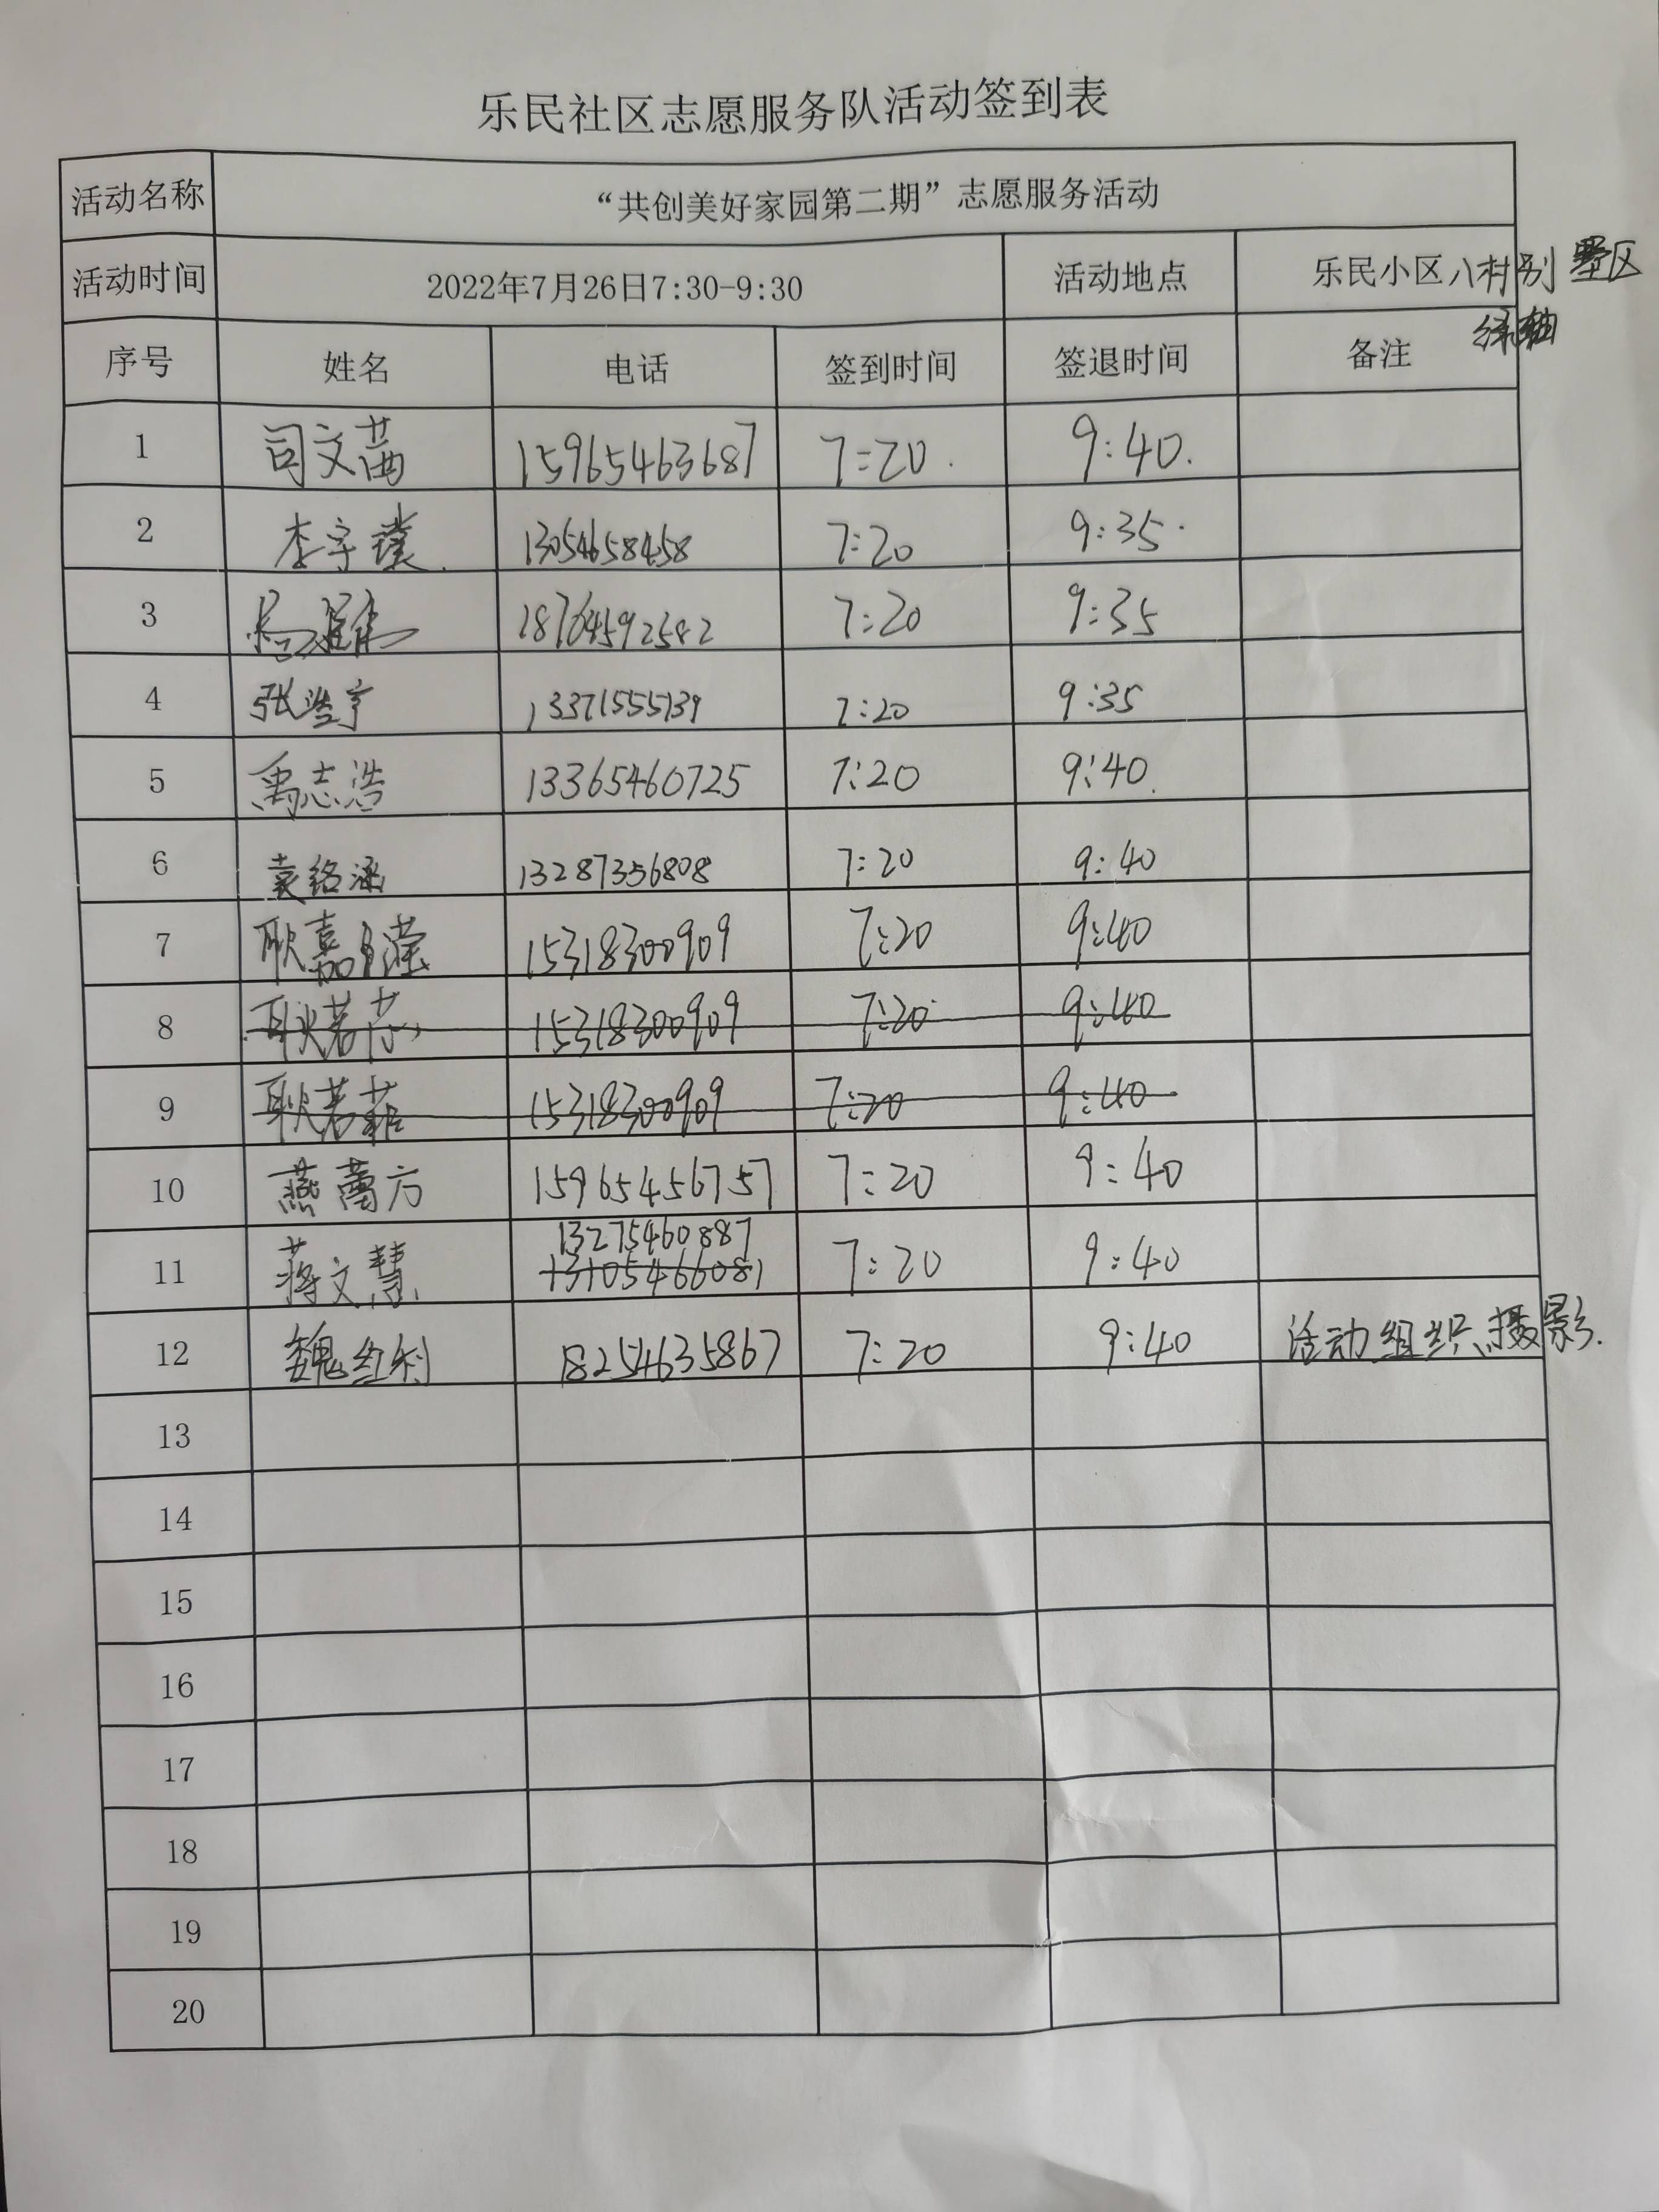 乐民社区志愿服务队活动签到表
活动名称 “共创美好家园第二期”志愿服务活动
活动时间 2022年7月26日7:30-9:30 活动地点 乐民小区八村别墅区
绿轴
序号 姓名 电话 签到时间 签退时间 备注
1 司文茜 15965463687 7:20 9:40
2 李宇璞 13054658458 7:20 9:35
3 18764592582 7:20 9:35
4 张 13371555139 7:20 9:35
5 禹志浩 13365460725 7:20 9:40
6 袁络涵 13287356808 7:20 9:40
7 耿嘉滢 15318300909 7:20 9:40
8 耿若芯 15318300909 7:20 9:40
9 耿若菲 15318300909 7:20 9:40
10 燕萬方 15965456757 7:20 9:40
13275460887
11 蒋文慧 13105466081 7:20 9:40
12 魏红利 18254635867 7:20 9:40 活动组织、摄影.
13
14
15
16
17
18
19
20